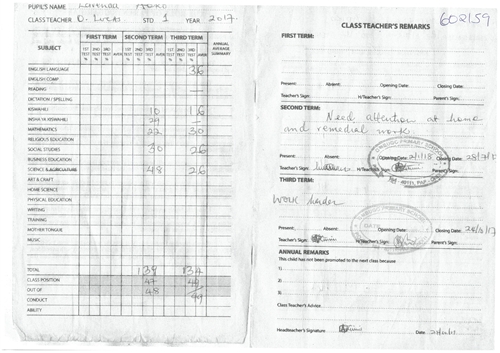 PUPIL'S NAME
CLASS TEACHER O. Lucas STD 1 YEAR 2017.
SUBJECT FIRST TERM SECOND TERM THIRD TERM ANNUAL AVERAGE SUMMARY
1ST TEST % 2ND TEST % AVER 1ST TEST % 2ND TEST % AVER 1ST TEST % 2ND TEST % AVER
ENGLISH LANGUAGE 36
ENGLISH COMP
READING —
DICTATION / SPELLING
KISWAHILI 10 16
INSHA YA KISWAHILI 29 —
MATHEMATICS 22 30
RELIGIOUS EDUCATION
SOCIAL STUDIES 30 26
BUSINESS EDUCATION
SCIENCE & AGRICULTURE 48 26
ART & CRAFT
HOME SCIENCE
PHYSICAL EDUCATION
WRITING
TRAINING
MOTHER TONGUE
MUSIC
TOTAL 139 134
CLASS POSITION 47
OUT OF 48 49
CONDUCT
ABILITY
602159
CLASS TEACHER'S REMARKS
FIRST TERM:
Present: Absent: Opening Date: Closing Date:
Teacher's Sign: H/Teacher's Sign: Parent's Sign:
SECOND TERM:
Need attention at home
and remedial work
Present: Absent: Opening Date: Closing Date:
Teacher's Sign: H/Teacher's Sign: Parent's Sign:
THIRD TERM:
Work harder
Present: Absent: Opening Date: Closing Date:
Teacher's Sign: H/Teacher's Sign: Parent's Sign:
ANNUAL REMARKS
This child has not been promoted to the next class because
1)
2)
3)
Class Teacher's Advice:
Headteacher's Signature Date: